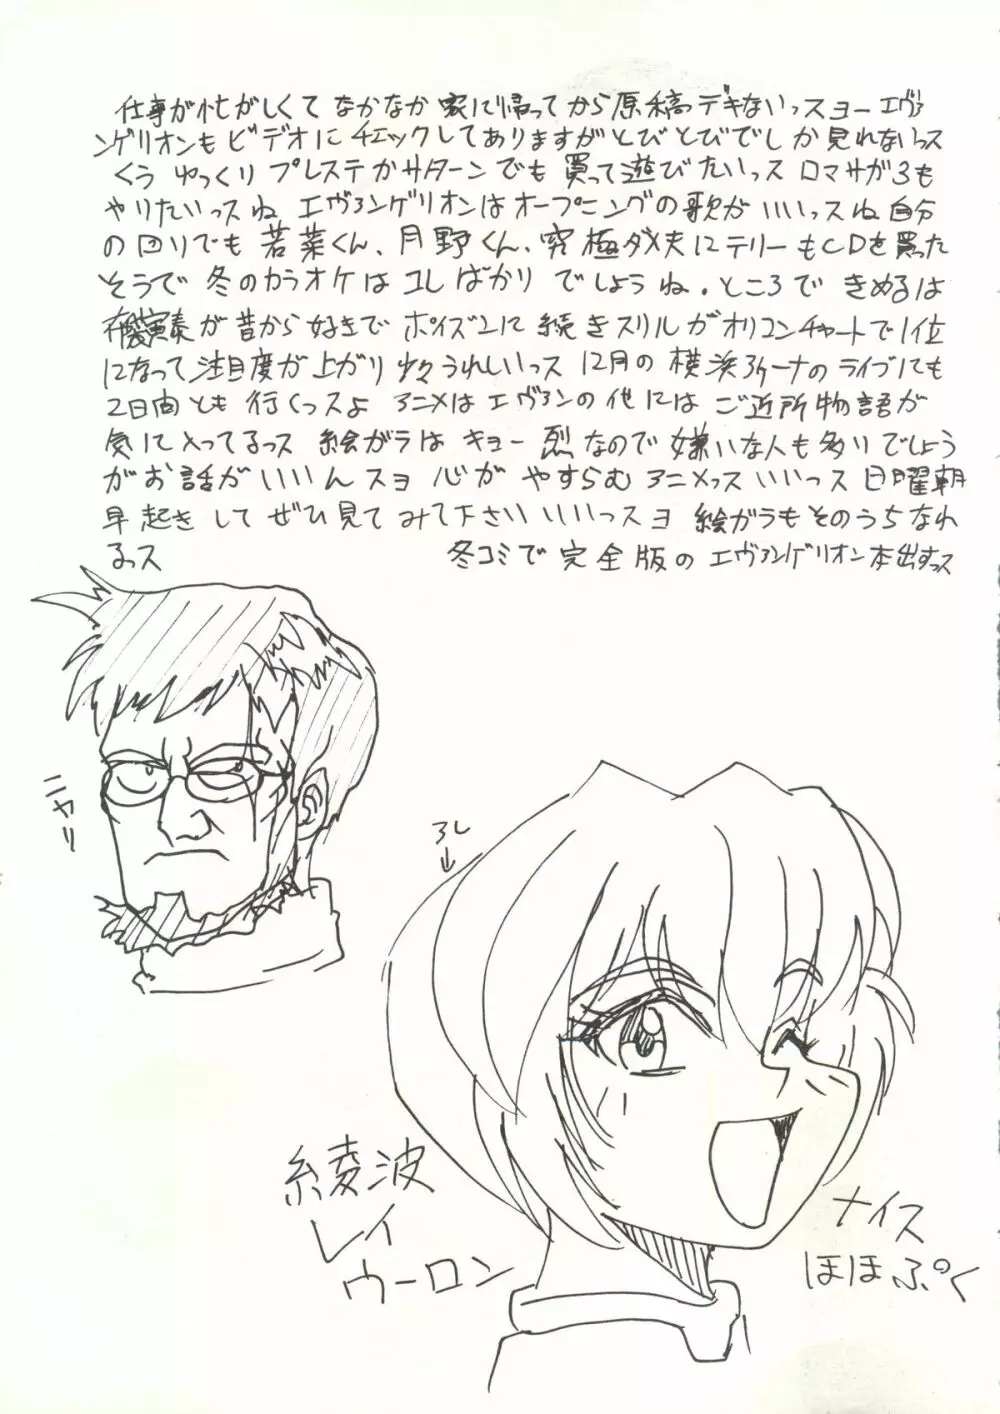 仕事が忙がしくて なかなか 家に帰ってから原稿デキないっスヨー エヴァ
ンゲリオンも ビデオに チェックしてありますがとびとびでしか見れないっス
くう ゆっくり プレステかサターンでも 買って遊びたいっス ロマサガ3も
やりたいっスね エヴァンゲリオンはオープニングの歌がいいっスね 自分
の回りでも 若菜くん、月野くん、究極ダメ夫にテリーもCDを買った
そうで 冬のカラオケは コレばかり でしょうね。ところで きめるは
が昔から好きで ポイズンに続きスリルがオリコンチャートで1位
になって注目度が上がり 少々うれしいっス 12月の 横浜アリーナのライブにも
2日間とも 行くっスよ アニメは エヴァンの他には ご近所物語が
気に入ってるっス 絵ガラは キョー烈なので 嫌いな人も多いでしょう
がお話がいいんスヨ 心が やすらむ アニメっス いいっス 日曜朝
早起き して ぜひ見て みて下さい いいっスヨ 絵ガラもそのうちなれ
るっス
冬コミで 完全版の エヴァンゲリオン本出すっス
ニヤリ
アレ
綾波
レイ
ウーロン
ナイス
ほほぷく